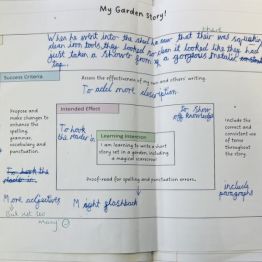 My Garden Story!
where
When he went into the shed he saw that their was squeaky
clean iron tools, they looked so clean it looked like they had
just taken a shower from of a gorgeous
Success Criteria
Assess the effectiveness of my own and others' writing.
To add more description
Propose and
make changes to
enhance the
spelling,
grammar,
vocabulary and
punctuation.
To hook the
reader in
More adjectives
But not too
many
Intended Effect
To hook
the reader in
to show
off knowledge
Learning Intention
I am learning to write a short
story set in a garden, including
a magical scarecrow.
Proof-read for spelling and punctuation errors.
flashback
Include
the correct
and consistent
use of
tense
throughout
the story.
include
paragraphs